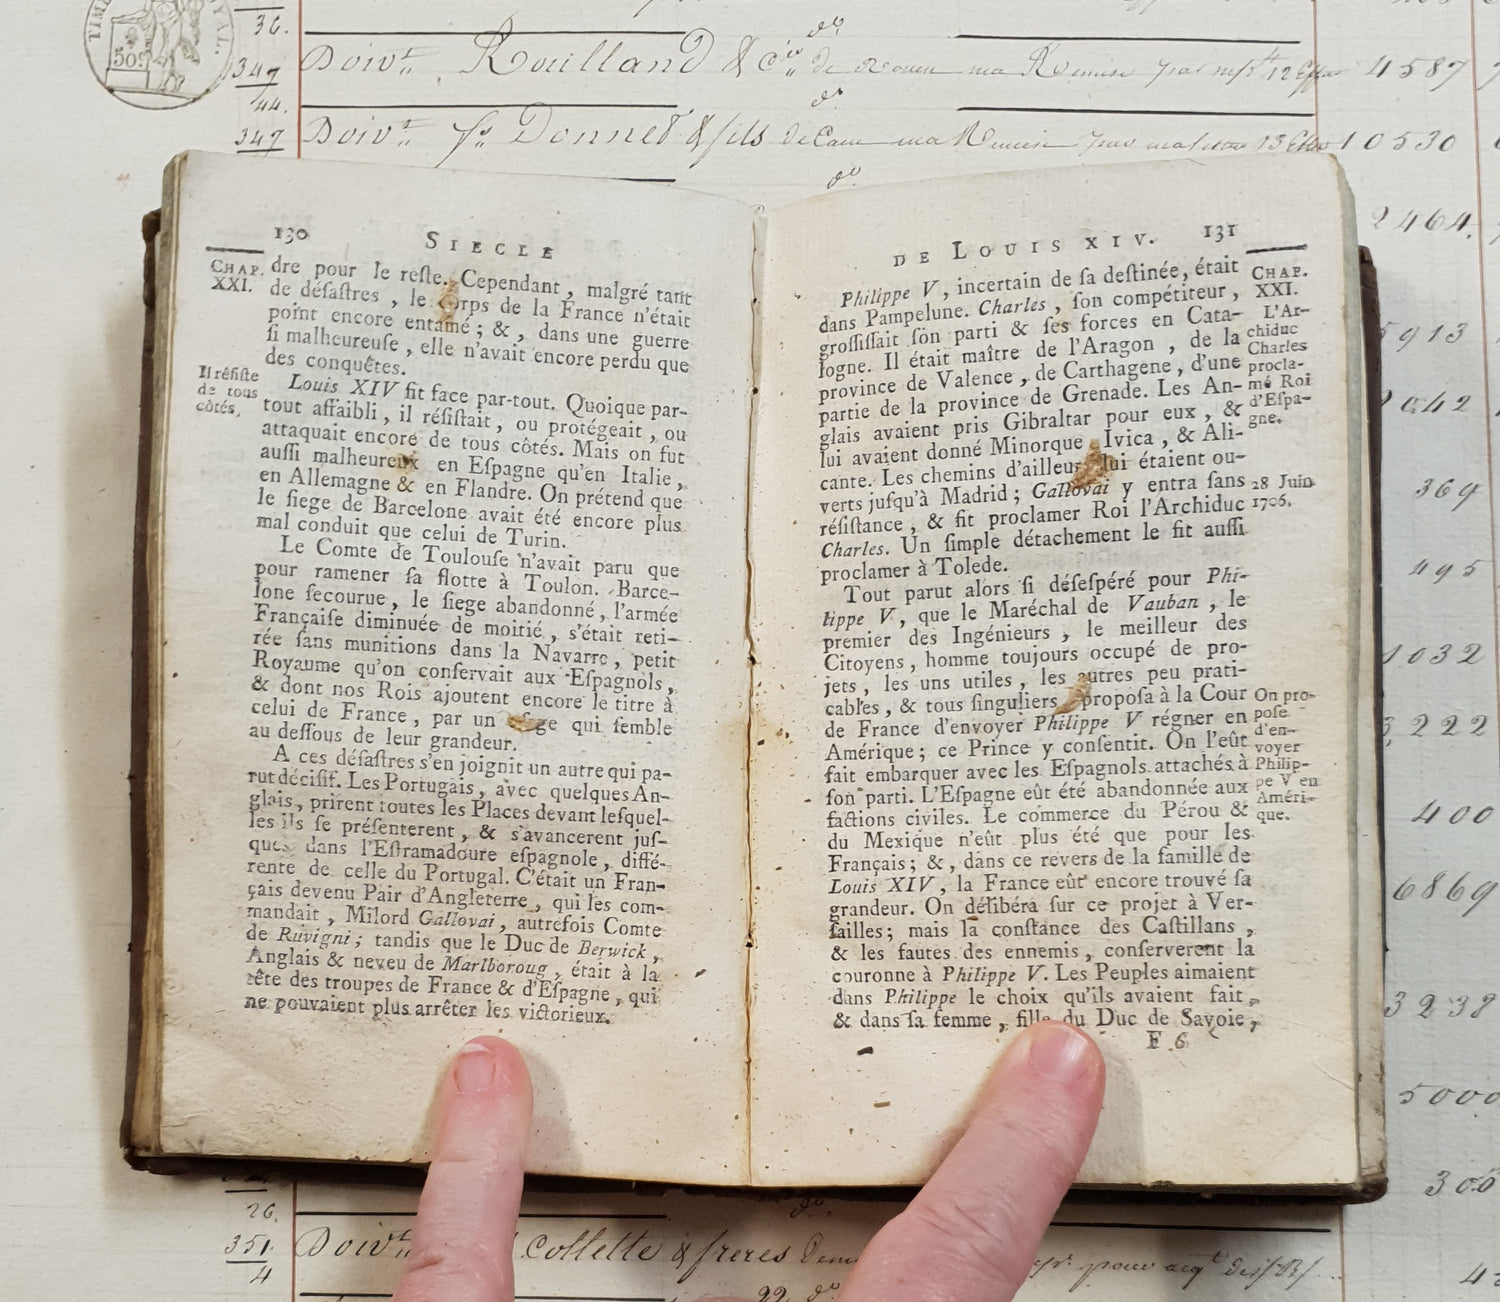 36.
do
347
Doivt. Rouilland & Cie de Rouen ma Remise par m/t 12 4587
44.
do
347
Doivt. fs Donnet & fils de Caen ma Remise par ma lettre 13 10530
do
2464.
5913
2042
369
495
1032
3222
400
6869
3238
5000
300
130 SIECLE
CHAP. XXI.
dre pour le reste. Cependant, malgré tant
de désaſtres, le corps de la France n'était
point encore entamé; &, dans une guerre
ſi malheureuſe, elle n'avait encore perdu que
des conquêtes.
Il réſiſte
de tous
côtés,
Louis XIV fit face par-tout. Quoique par-
tout affaibli, il réſiſtait, ou protégeait, ou
attaquait encore de tous côtés. Mais on fut
auſſi malheureux en Eſpagne qu'en Italie,
en Allemagne & en Flandre. On prétend que
le ſiege de Barcelone avait été encore plus
mal conduit que celui de Turin.
Le Comte de Toulouſe n'avait paru que
pour ramener ſa flotte à Toulon. Barce-
lone ſecourue, le ſiege abandonné, l'armée
Françaiſe diminuée de moitié, s'était reti-
rée ſans munitions dans la Navarre, petit
Royaume qu'on conſervait aux Eſpagnols,
& dont nos Rois ajoutent encore le titre à
celui de France, par un uſage qui ſemble
au deſſous de leur grandeur.
A ces déſaſtres s'en joignit un autre qui pa-
rut déciſif. Les Portugais, avec quelques An-
glais, prirent toutes les Places devant leſquel-
les ils ſe préſenterent, & s'avancerent juſ-
ques dans l'Eſtramadoure eſpagnole, diffé-
rente de celle du Portugal. C'était un Fran-
çais devenu Pair d'Angleterre, qui les com-
mandait, Milord Gallovai, autrefois Comte
de Ruvigni; tandis que le Duc de Berwick,
Anglais & neveu de Marlboroug, était à la
tête des troupes de France & d'Eſpagne, qui
ne pouvaient plus arrêter les victorieux.
DE LOUIS XIV. 131
CHAP.
XXI.
Philippe V, incertain de ſa deſtinée, était
dans Pampelune. Charles, ſon compétiteur,
groſſiſſait ſon parti & ſes forces en Cata-
logne. Il était maître de l'Aragon, de la
province de Valence, de Carthagene, d'une
partie de la province de Grenade. Les An-
glais avaient pris Gibraltar pour eux, &
lui avaient donné Minorque, Ivica, & Ali-
cante. Les chemins d'ailleurs lui étaient ou-
verts juſqu'à Madrid; Gallovai y entra ſans
réſiſtance, & fit proclamer Roi l'Archiduc
Charles. Un ſimple détachement le fit auſſi
proclamer à Tolede.
L'Ar-
chiduc
Charles
procla-
mé Roi
d'Eſpa-
gne.
28 Juin
1706.
Tout parut alors ſi déſeſpéré pour Phi-
lippe V, que le Maréchal de Vauban, le
premier des Ingénieurs, le meilleur des
Citoyens, homme toujours occupé de pro-
jets, les uns utiles, les autres peu prati-
cables, & tous ſinguliers, propoſa à la Cour
de France d'envoyer Philippe V régner en
Amérique; ce Prince y conſentit. On l'eût
fait embarquer avec les Eſpagnols attachés à
ſon parti. L'Eſpagne eût été abandonnée aux
factions civiles. Le commerce du Pérou &
du Mexique n'eût plus été que pour les
Français; &, dans ce revers de la famille de
Louis XIV, la France eût encore trouvé ſa
grandeur. On délibéra ſur ce projet à Ver-
ſailles; mais la conſtance des Caſtillans,
& les fautes des ennemis, conſerverent la
couronne à Philippe V. Les Peuples aimaient
dans Philippe le choix qu'ils avaient fait,
& dans ſa femme, fille du Duc de Savoie,
On pro-
poſe
d'en-
voyer
Philip-
pe V en
Améri-
que.
F 6
26.
do
351
Doivt. Collette & freres
4
22 do